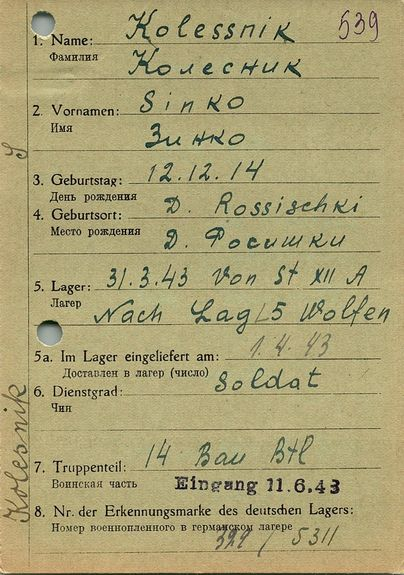 539
1. Name: Kolessnik
Фамилия Колесник
2. Vornamen: Sinko
Имя Зинко
3. Geburtstag: 12.12.14
День рождения
4. Geburtsort: D. Rossischki
Место рождения Д. Росишки
5. Lager: 31.3.43 Von St XII A
Лагер Nach Lag L5 Wolfen
5a. Im Lager eingeliefert am: 1.4.43
Доставлен в лагер (число)
6. Dienstgrad: Soldat
Чин
7. Truppenteil: 14 Bau Btl
Воинская часть Eingang 11.6.43
8. Nr. der Erkennungsmarke des deutschen Lagers:
Номер военнопленного в германском лагере
/ 5311
Kolesnik
S